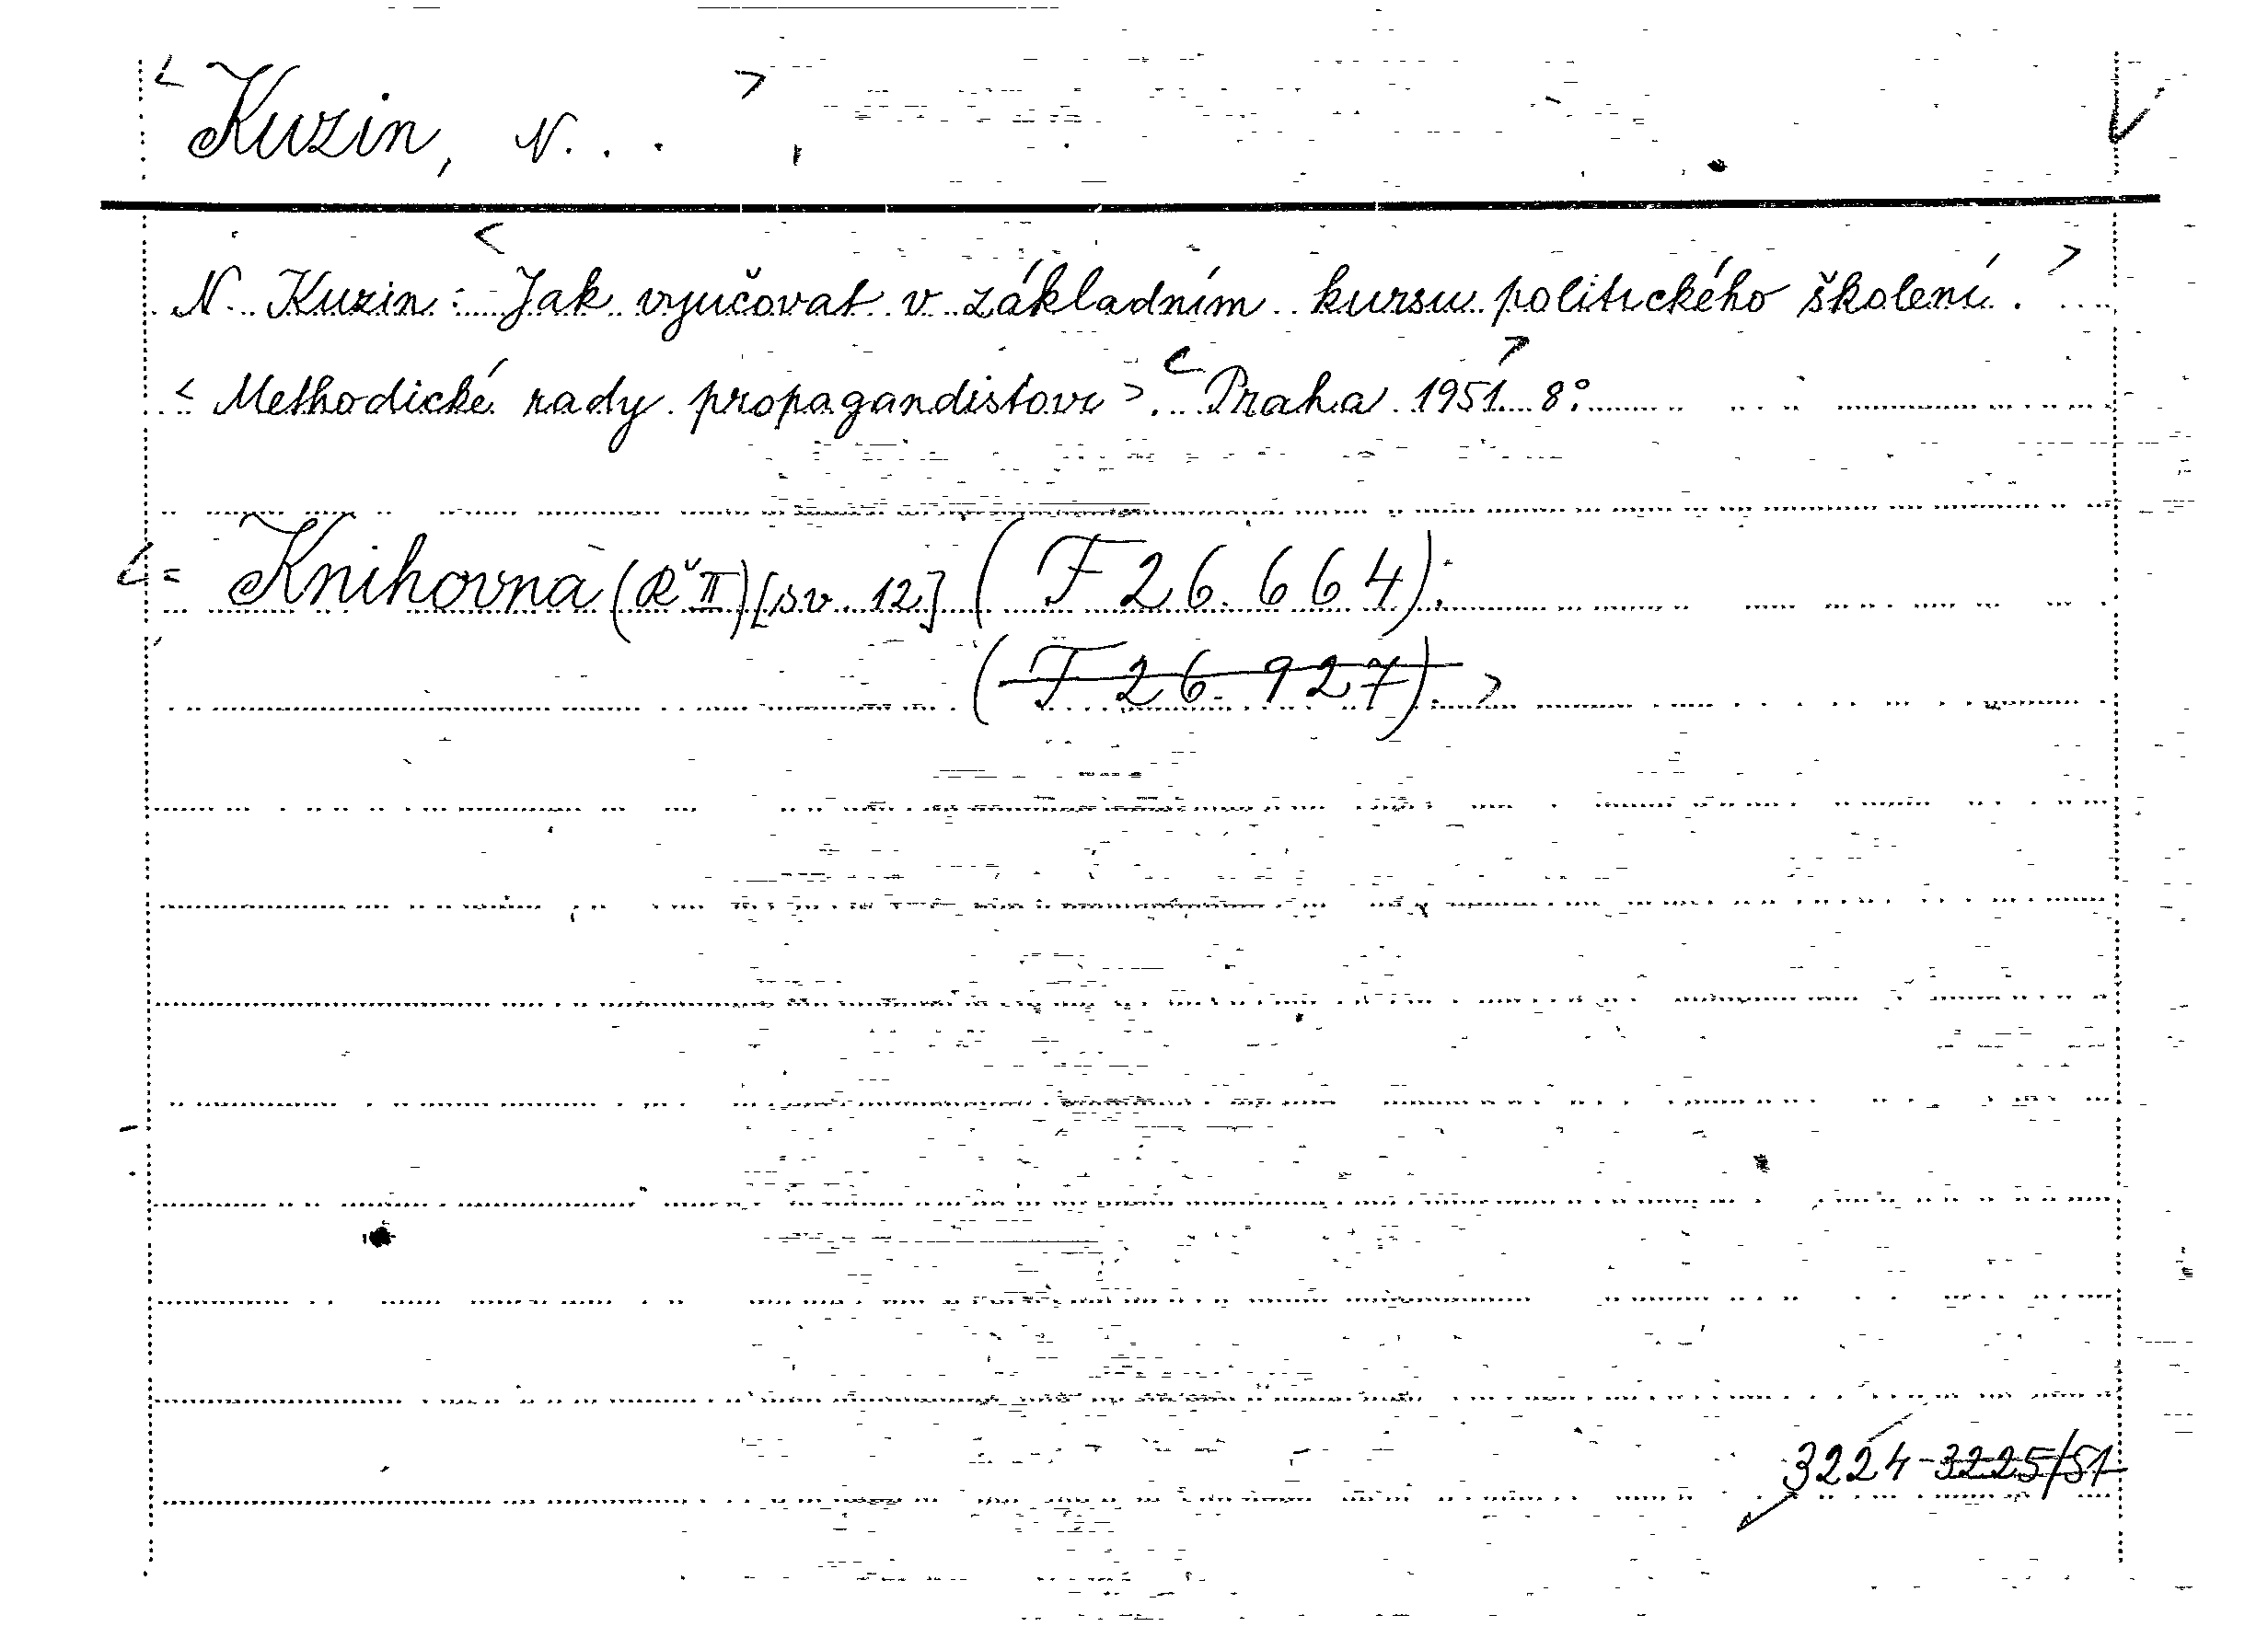 < Kuzin, N. . . >
N. Kuzin: < Jak vyučovat v základním kursu politického školení. >
< Methodické rady propagandistovi >. < Praha 1951 > 8°.
< = Knihovna (Ř II) [sv. 12] (F 26.664).
(F 26.927). >
3224-3225/51